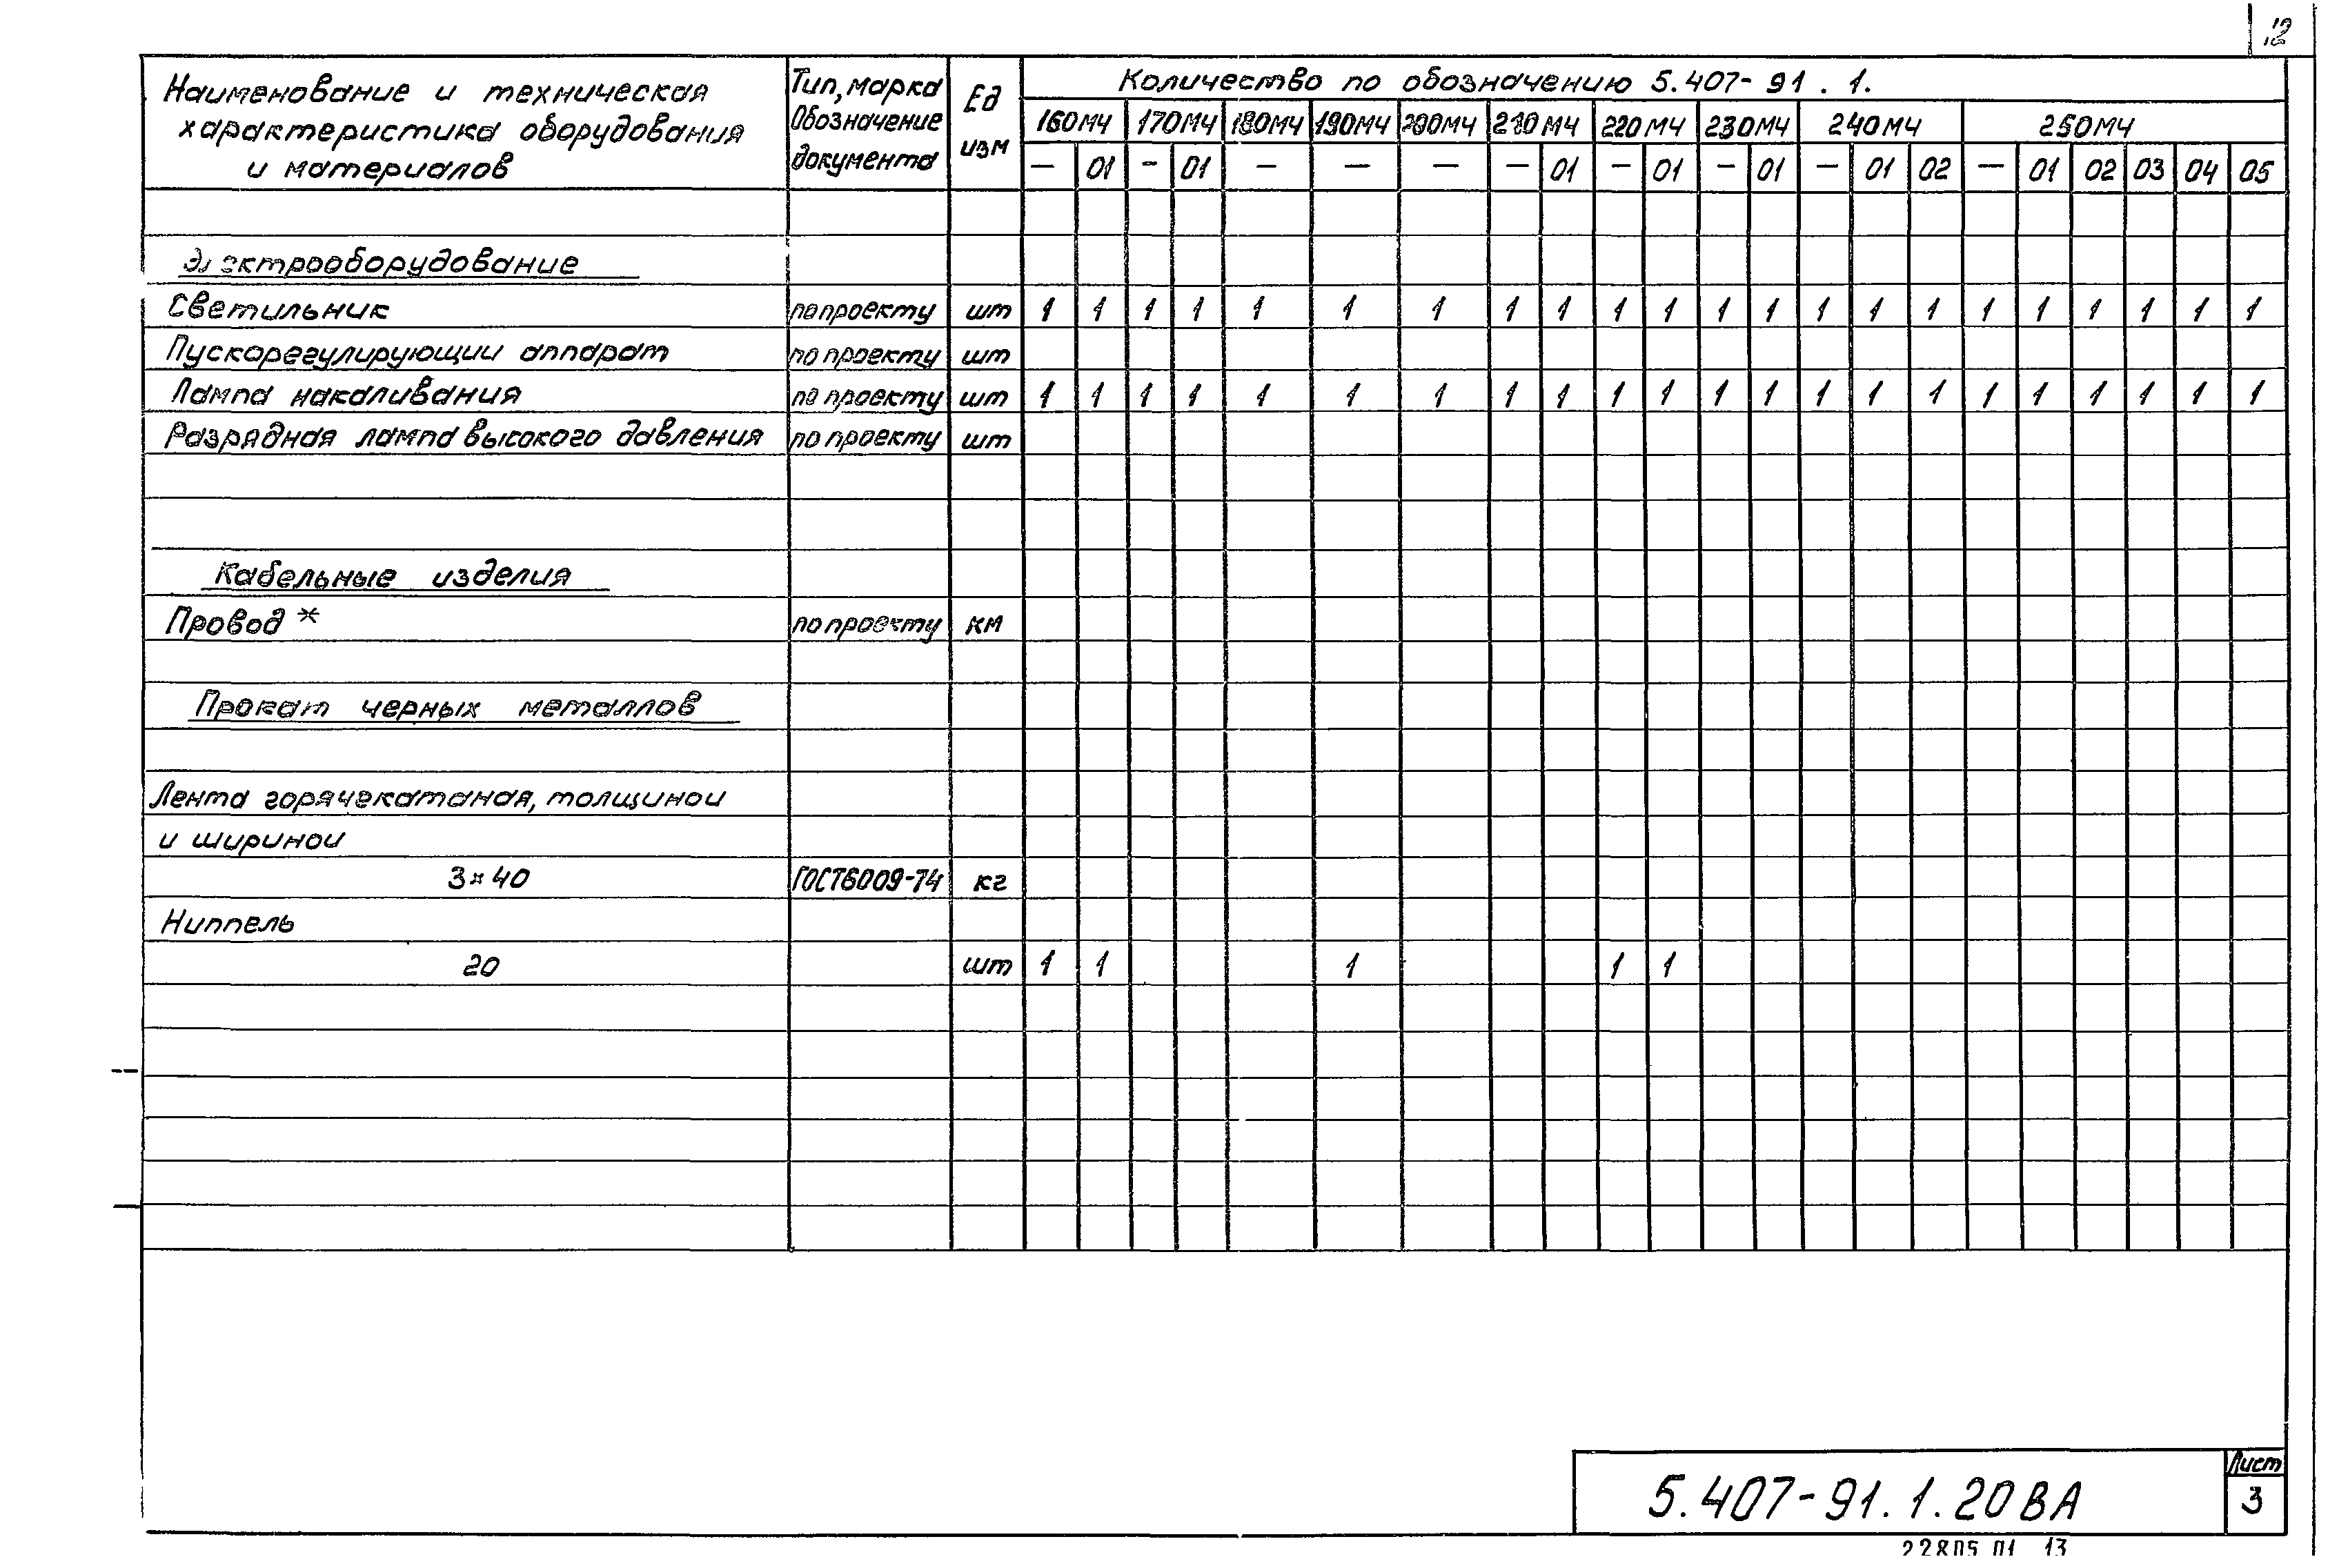 12
Наименование и техническая характеристика оборудования и материалов
Тип, марка Обозначение документа
Ед изм
Количество по обозначению 5.407-91.1.
160МЧ 170МЧ 180МЧ 190МЧ 200МЧ 210МЧ 220МЧ 230МЧ 240МЧ 250МЧ
— 01 — 01 — — — — 01 — 01 — 01 — 01 02 — 01 02 03 04 05
Электрооборудование
Светильник по проекту шт 1 1 1 1 1 1 1 1 1 1 1 1 1 1 1 1 1 1 1 1 1 1
Пускорегулирующии аппарат по проекту шт
Лампа накаливания по проекту шт 1 1 1 1 1 1 1 1 1 1 1 1 1 1 1 1 1 1 1 1 1 1
Разрядная лампа высокого давления по проекту шт
Кабельные изделия
Провод * по проекту км
Прокат черных металлов
Лента горячекатаная, толщинои
и ширинои
3×40 ГОСТ6009-74 кг
Ниппель
20 шт 1 1 1 1 1
5.407-91.1.20ВА
Лист
3
22805 01 13